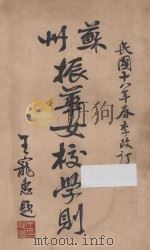 民國十八年春季改訂
蘇州振華女校學則
王寵惠題